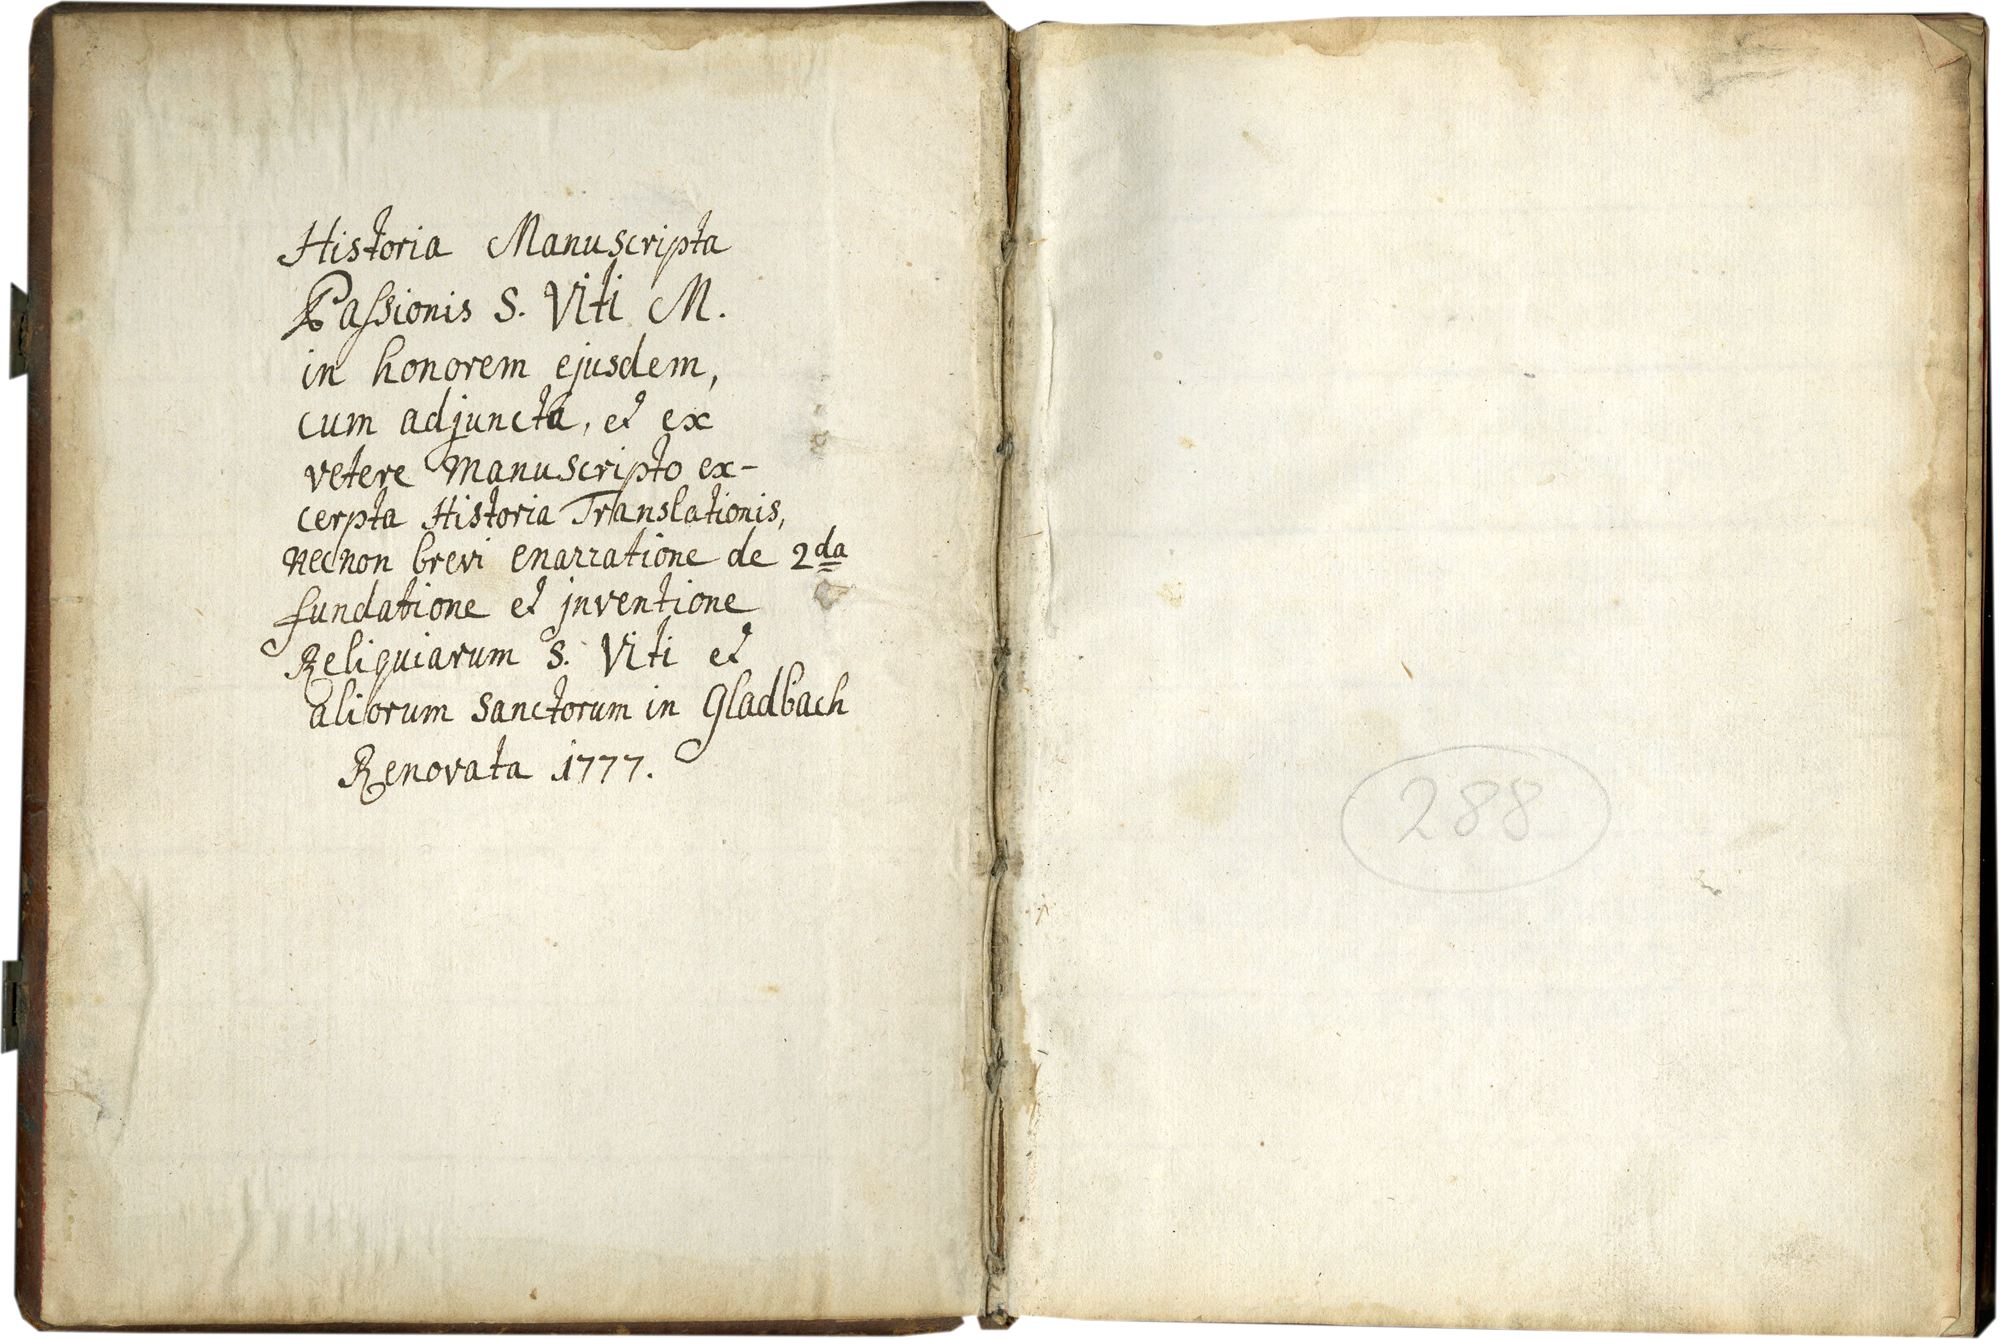 Historia Manuscripta
Paſsionis S. Viti M.
in honorem ejusdem,
cum adjuncta, et ex
vetere Manuscripto ex-
cerpta Historia Translationis,
necnon brevi enarratione de 2da
fundatione et jnventione
Reliquiarum S. Viti et
aliorum Sanctorum in Gladbach
Renovata 1777.
288